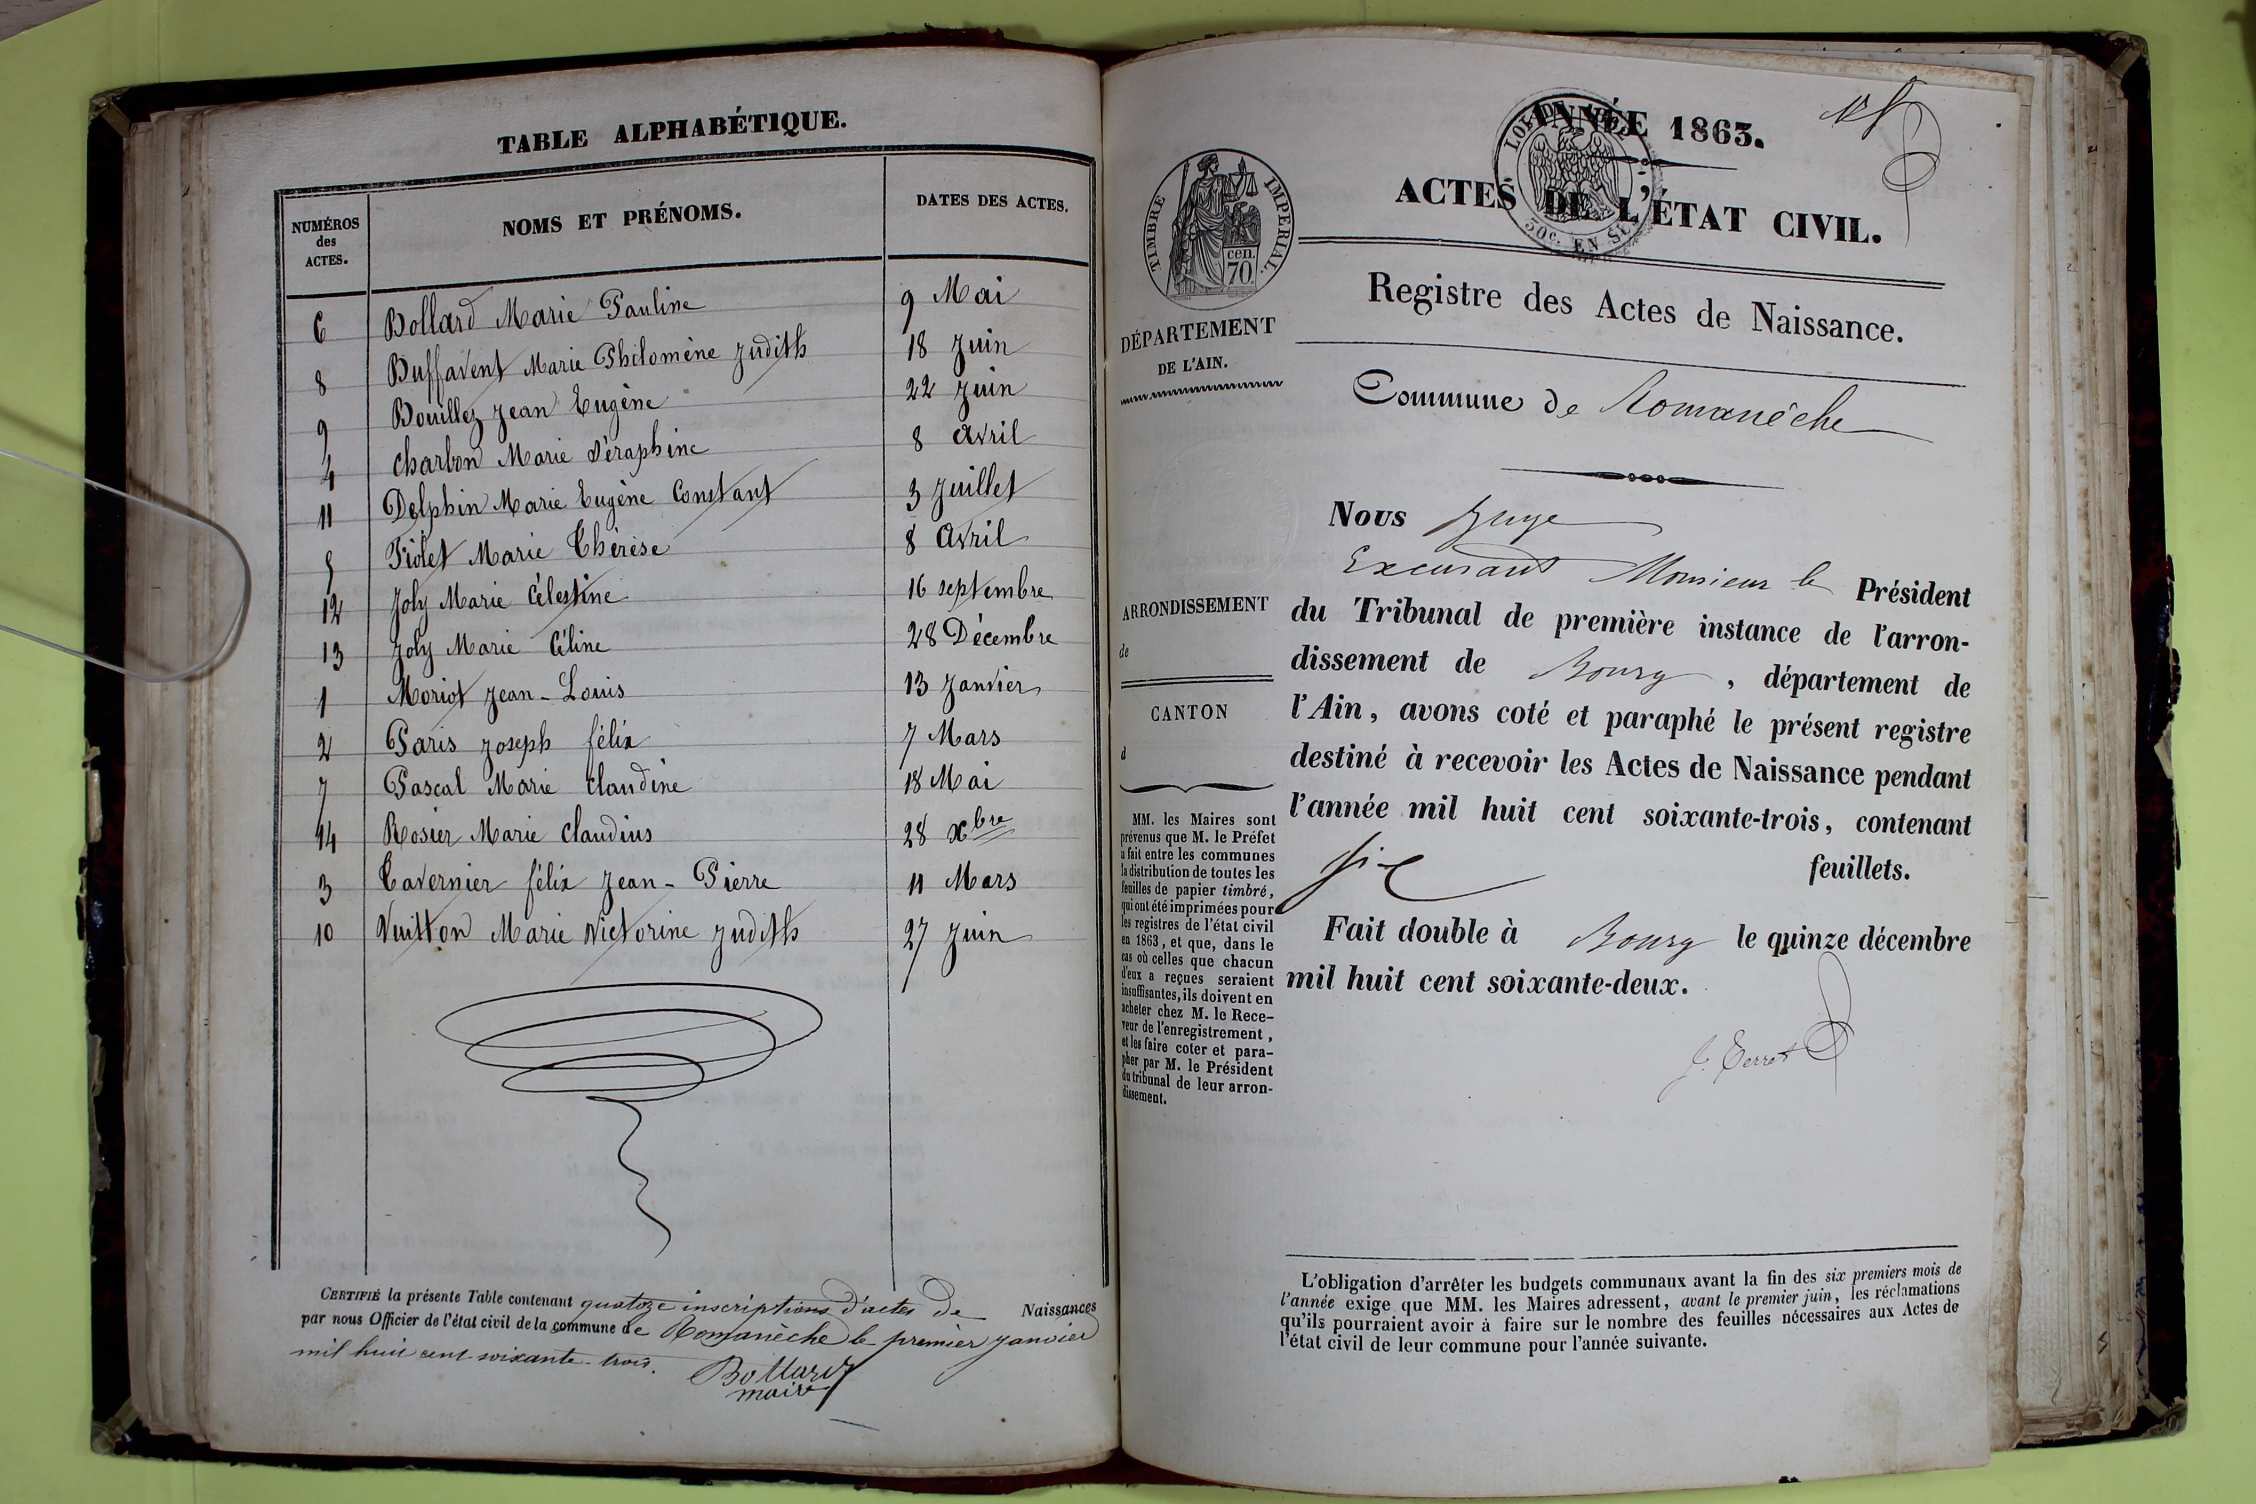 TABLE ALPHABÉTIQUE.
NUMÉROS des ACTES. NOMS ET PRÉNOMS. DATES DES ACTES.
6 Bollard Marie Pauline 9 Mai
8 Buffavent Marie Philomène Judith 18 Juin
9 Bouillez Jean Eugène 22 Juin
4 Charbon Marie Séraphine 8 Avril
11 Delphin Marie Eugène Constant 3 Juillet
5 Fiolet Marie Thérèse 8 Avril
12 Joly Marie Célestine 16 septembre
13 Joly Marie Céline 28 Décembre
1 Moriot Jean-Louis 13 Janvier
2 Paris Joseph félix 7 Mars
7 Pascal Marie Claudine 18 Mai
14 Rosier Marie Claudius 28 xbre
3 Tavernier félix Jean-Pierre 11 Mars
10 Vuitton Marie Victorine Judith 27 Juin
CERTIFIÉ la présente Table contenant quatoze inscriptions d'actes de Naissances
par nous Officier de l'état civil de la commune de Romanèche le premier janvier
mil huit cent soixante-trois.
Bollard
maire
ANNÉE 1863.
ACTES DE L'ÉTAT CIVIL.
TIMBRE IMPÉRIAL.
cen.
70
50c. EN SUS
DÉPARTEMENT
DE L'AIN.
Registre des Actes de Naissance.
Commune de Romanèche
Nous Juge
Monsieur le Président
du Tribunal de première instance de l'arron-
dissement de Bourg, département de
l'Ain, avons coté et paraphé le présent registre
destiné à recevoir les Actes de Naissance pendant
l'année mil huit cent soixante-trois, contenant
six feuillets.
Fait double à Bourg le quinze décembre
mil huit cent soixante-deux.
ARRONDISSEMENT
de
CANTON
d
MM. les Maires sont
prévenus que M. le Préfet
a fait entre les communes
la distribution de toutes les
feuilles de papier timbré,
qui ont été imprimées pour
les registres de l'état civil
en 1863, et que, dans le
cas où celles que chacun
d'eux a reçues seraient
insuffisantes, ils doivent en
acheter chez M. le Rece-
veur de l'enregistrement,
et les faire coter et para-
pher par M. le Président
du tribunal de leur arron-
dissement.
L'obligation d'arrêter les budgets communaux avant la fin des six premiers mois de
l'année exige que MM. les Maires adressent, avant le premier juin, les réclamations
qu'ils pourraient avoir à faire sur le nombre des feuilles nécessaires aux Actes de
l'état civil de leur commune pour l'année suivante.